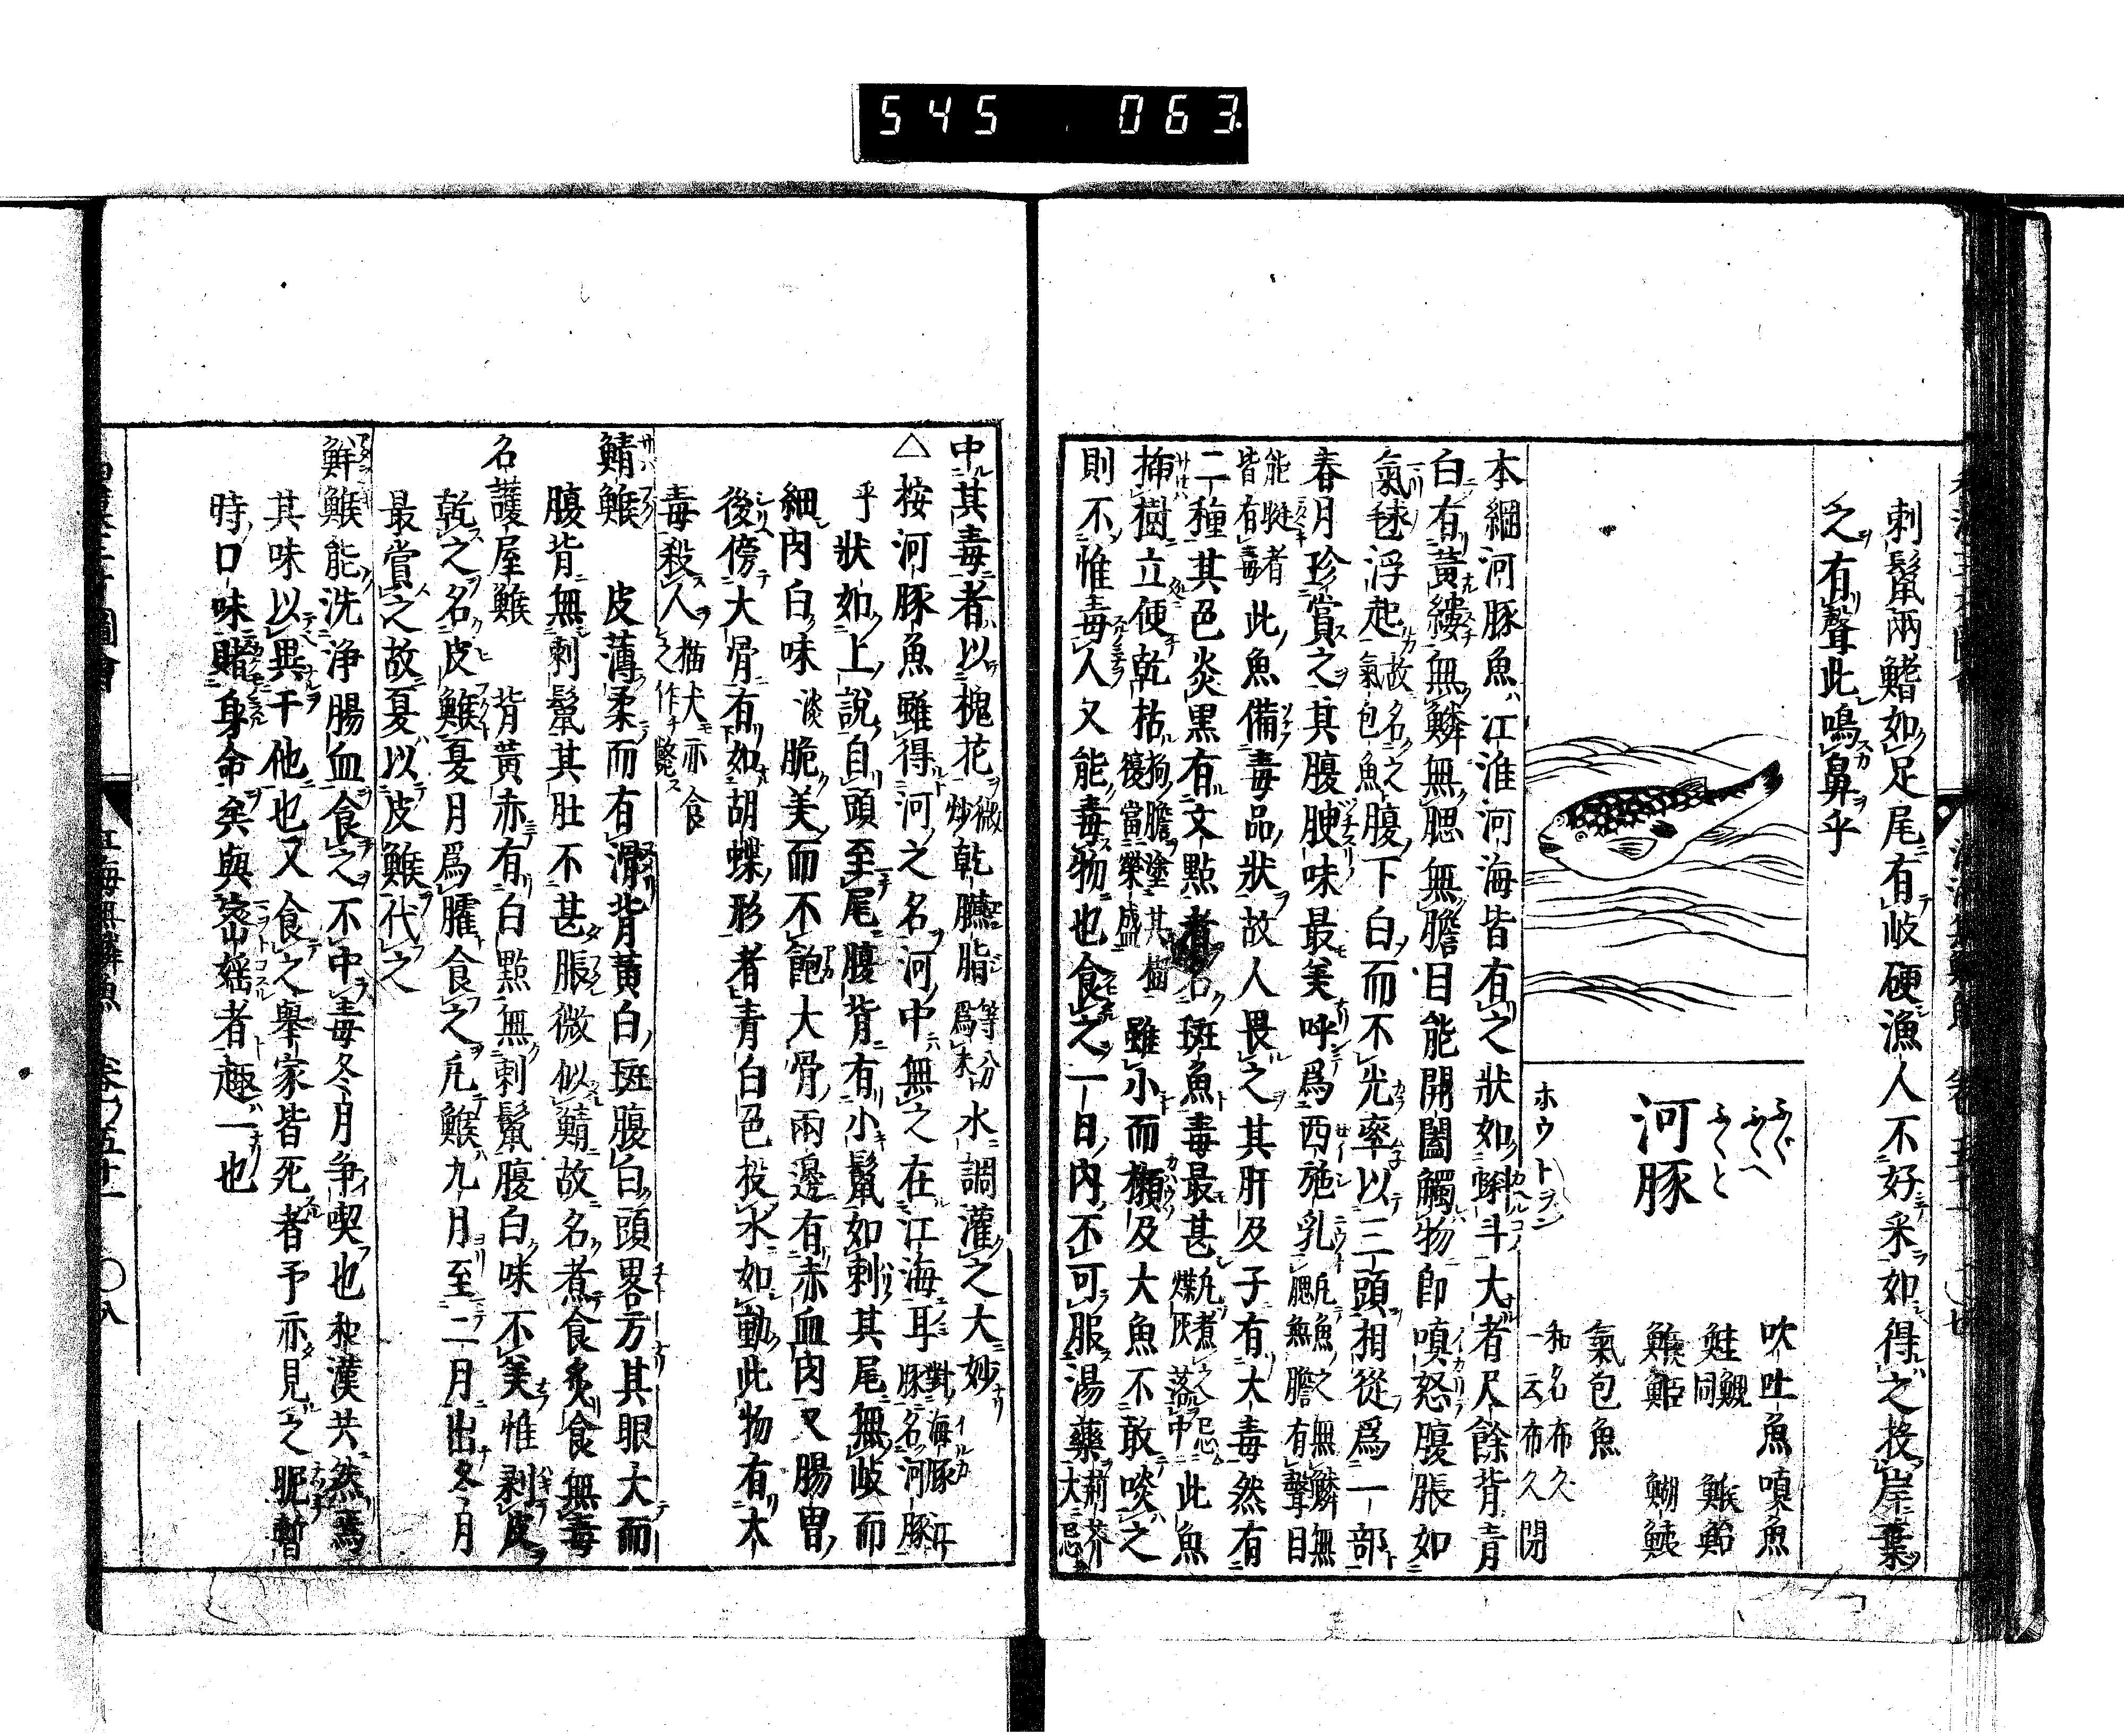 545 063
刺鬣兩鰭如足尾有岐硬漁人不好采如得之投岸棄
之有聲此鳴鼻乎
河豚
ふぐ
ふくへ
ふくと
ホウトヲン
吹吐魚 嗔魚
鯸鮐
氣包魚
和名布久
一云布久閉
本綱河豚魚江淮河海皆有之狀如蝌斗大者尺餘背青
白有黃縷無鱗無腮無膽目能開闔觸物即嗔怒腹脹如
氣毬浮起故名之氣包魚腹下白而不光率以三頭相從爲一部
春月珍賞之其腹腴味最美呼爲西施乳凡魚之無鱗無腮無膽有聲目
能眨者皆有毒此魚備毒品狀故人畏之其肝及子有大毒然有
二種其色炎黒有文點者名斑魚毒最甚凡煮之忌煤灰落中此魚
插樹立便乾枯狗膽塗其樹復當榮盛雖小而獺及大魚不敢啖之
則不惟毒人又能毒物也食之一日内不可服湯藥荊芥大忌
中其毒者以槐花微炒乾臙脂等分爲末水調灌之大妙
△按河豚魚雖得河之名河中無之在江海耳對海豚名河豚耳
乎狀如上說自頭至尾腹背有小鬣如刺其尾無岐而
細肉白味淡脆美而不飽大骨兩邊有赤血肉又腸曽
後傍大骨有如胡蝶形者青白色投水如動此物有大
毒殺人猫犬亦食之作斃
鯖鯸 皮薄柔而有滑背黃白斑腹白頭畧方其眼大而
腹背無刺鬣其肚不甚脹微似鯖故名煮食炙食無毒
名護屋鯸 背黃赤有白點無刺鬣腹白味不美惟剥皮
乾之名皮鯸夏月爲臛食之凡鯸九月至二月出冬月
最賞之故夏以皮鯸代之
鮮鯸能洗浄腸血食之不中毒冬月争喫也和漢共然焉
其味以異于他也又食之舉家皆死者予亦見之昵暫
時口味賭身命矣與密婬者趣一也